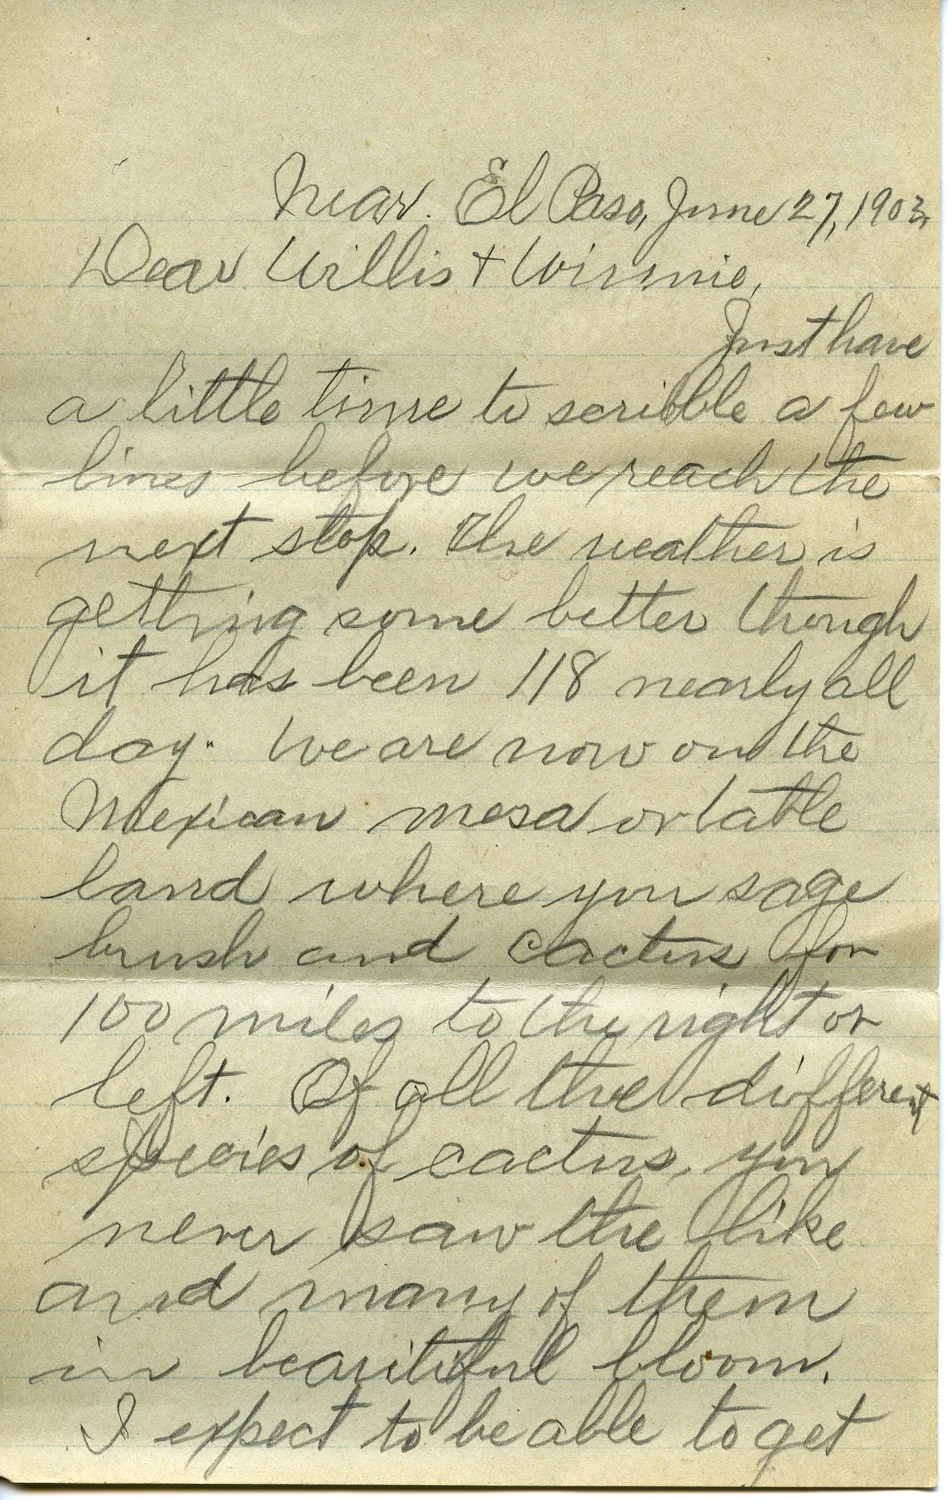 Near. El Paso, June 27, 1903.
Dear Willis + Winnie,
Just have
a little time to scribble a few
lines before we reach the
next stop. The weather is
getting some better though
it has been 118 nearly all
day. We are now on the
Mexican mesa or table
land where you sage
brush and cactus for
100 miles to the right or
left. Of all the different
species of cactus, you
never saw the like
and many of them
in beautiful bloom.
I expect to be able to get